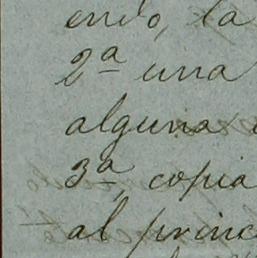 endo, la
2ª una
alguna
3ª, copia
al princ